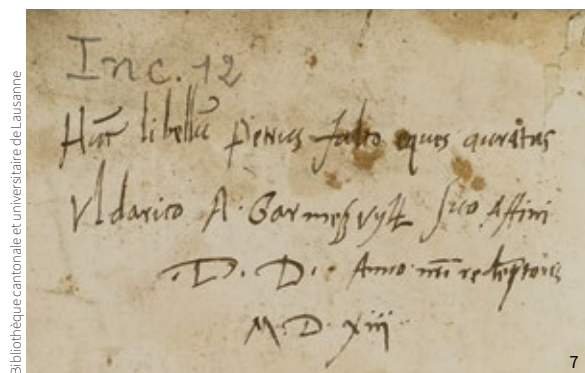 Bibliothèque cantonale et universitaire de Lausanne
Inc. 12
Hūc libellū petrus falco eques auratus
Vldarico A. Garmeßvyll suo Affini
D. D. Anno nr̄i redēptoris
M. D. xiij
7